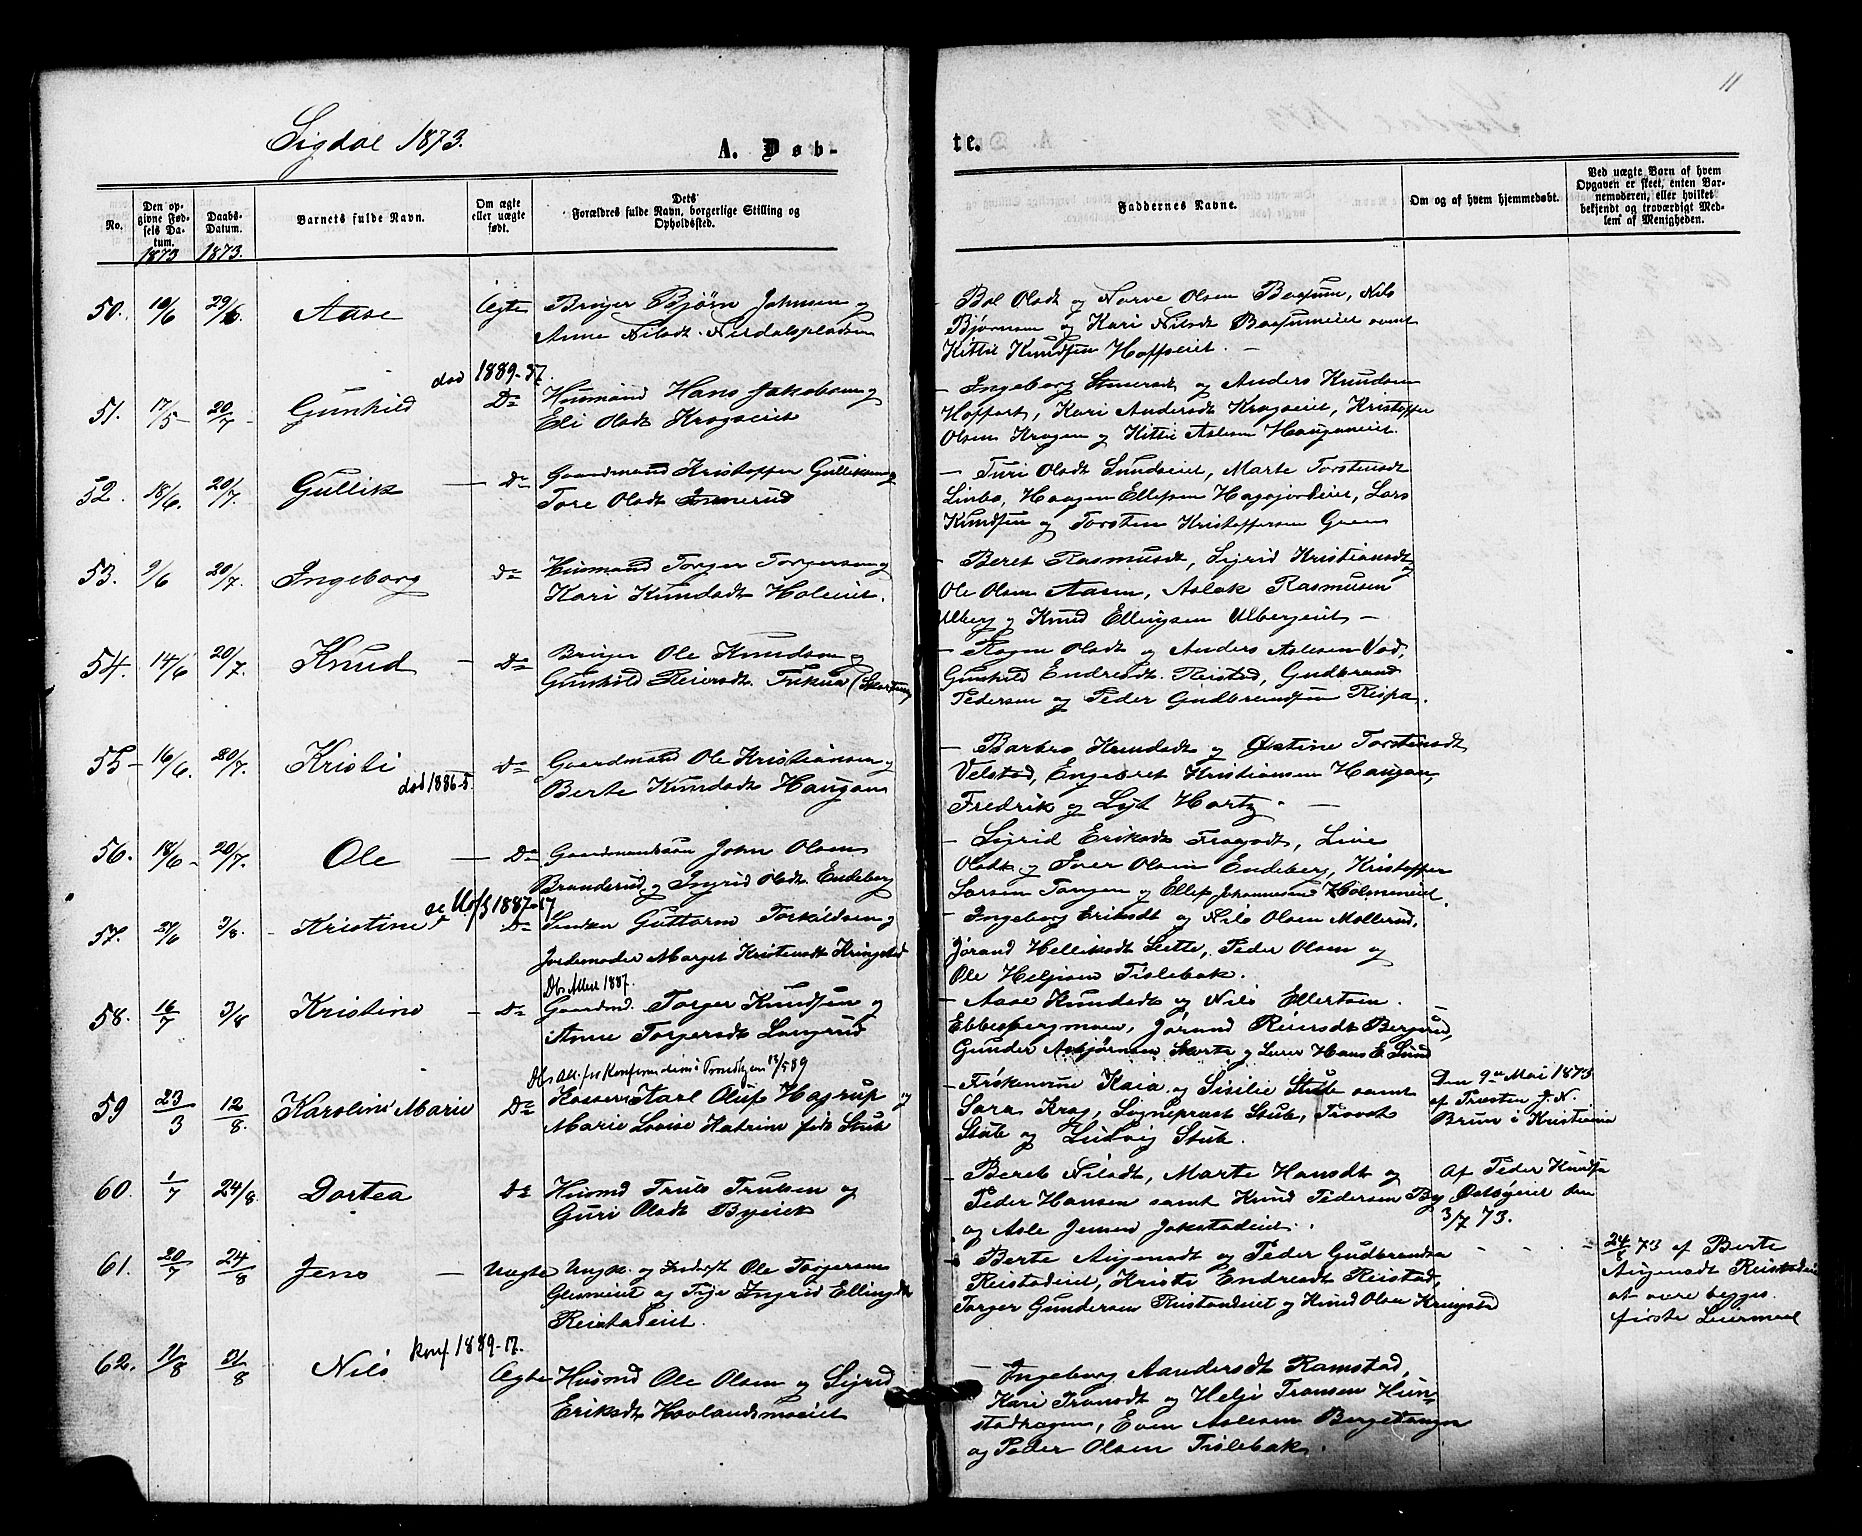 11
Sigdal 1873.
A. Døb-
te.
No.
Den opgivne Fødsels Datum. 1873
Daabs-Datum. 1873.
Barnets fulde Navn.
Om ægte eller uægte født.
Dets Forældres fulde Navn, borgerlige Stilling og Opholdssted.
Faddernes Navne.
Om og af hvem hjemmedøbt.
Ved uægte Barn af hvem Opgaven er skeet, enten Barnemoderen, eller hvilket bekjendt og troværdigt Medlem af Menigheden.
50. 10/6 29/6 Aase Ægte Bruger Bjørn Johnsen og
Anne Nilsdt.
Boel Olsdt og Narve Olsen Baasum, Nils
Bjørnsen og Kari Nilsdt Baasumeiet samt
Kittil Knudsen Hoffseiet. —
død 1889-57.
51. 17/5 20/7 Gunhild Do Husmand Hans Jakobsen og
Eli Olsdt Kragseiet
— Ingeborg og Anders Knudsen
Hoffart, Kari Andersdt Kragseiet, Kristoffer
Olsen Kragen og Kittil Aslesen Hauganeiet.
52. 18/6. 20/7. Gullik — Do Gaardmand Kristoffer Gulliksen og
Tore Olsdt
— Turi Olsdt Lundseiet, Marte Torstensdt
Linbo, Haagen Ellefsen Lars
Knudsen og Torsten Kristoffersen Green
53. 9/6 20/7. Ingeborg Do Husmand Torger Torgersen og
Kari Knudsdt Holeiet.
— Beret Rasmusdt, Sigrid Kristiansdt og
Ole Olsen Aasen, Aslak Rasmusen
Ulberg og Knud Ellingsen Ulbergeiet —
54. 14/6 20/7. Knud — Do Bruger Ole Knudsen og
Gunhild Reiersdt.
— Ragne Olsdt og Anders Aslesen Vad,
Gunhild Endresdt. Reistad, Gudbrand
Pedersen og Peder Gudbrandsen Reipa.
55 16/6. 20/7. Kristi Do Gaardmand Ole Kristiansen og
død 1886-5 Berte Knudsdt Haugan
— Barbro Knudsdt og Østine Torstensdt
Velstad, Engebret Kristiansen Haugan,
Fredrik og Hartz. —
56. 18/6 20/7. Ole — Do Gaardmandssøn John Olsen
Branderud og Ingrid Olsdt. Endeberg
— Sigrid Eriksdt Live
Olsdt og Iver Olsen Endeberg, Kristoffer
Larsen Tangen og Ellef Johannesen Holmeneiet.
1887-17
57. 27/6 3/8. Kristine Do Guttorm Torkildsen og
Jordemoder Marget Kristensdt Kringstad
— Ingeborg Eriksdt og Nils Olsen Møllerud,
Jørand Helliksdt Sætte, Peder Olsen og
Ole Helgesen Tislebak.
1887.
58. 16/7 3/8 Kristine — Do Gaardmd. Torger Knudsen og
Anne Torgersdt Langerud
— Aase Knudsdt og Nils Ellertsen.
Ebbesbergmoen, Jørand Reiersdt Bergerud,
Gunder Asbjørnsen Skarte og Lærer Hans E. Lund
Konfirmationen i Trondhjem 13/5 89
59 23/3 12/8. Karoline Marie Do Karl Oluf Hagrup og
Marie Lovise Katrine født Stub
— Frøknerne Kaia og Sisilie Stub samt
Sara Krag, Sogneprest Stub, Provst
Stub og Ludvig Stub.
Den 9de Mai 1873
af Presten J. N.
Brun i Kristiania
60. 1/7 24/8 Dortea Do Husmd Truls Trulsen og
Guri Olsdt Byeiet
— Beret Nilsdt, Marte Hansdt og
Peder Hansen samt Knud Pedersen By
og Asle Jensen Jokstadeiet.
Af Peder Knudsen
den
3/7 73.
61. 20/7 24/8 Jens — Uægte Ungk. og Inderst Ole Torgersen
Glesneeiet og Pige Ingrid Ellingsdt
Reistadeiet.
— Berte Augensdt og Peder Gudbrandsen
Reistadeiet, Kristi Endresdt Reistad,
Torger Gundersen Reistadeiet og Knud Olsen Kringstad
24/8 73 af Berte
Augensdt Reistadeiet
at være begges
første Leiermaal
konf 1889-17.
62. 11/8 31/8 Nils Ægte Husmd Ole Olsen og Sigrid
Eriksdt Hovlandsmoeiet
— Ingeborg Aandersdt Ramstad,
Kari Transdt og Helge Transen Hun-
stadhagen, Even Aslesen Bergetangen
og Peder Olsen Tislebak.